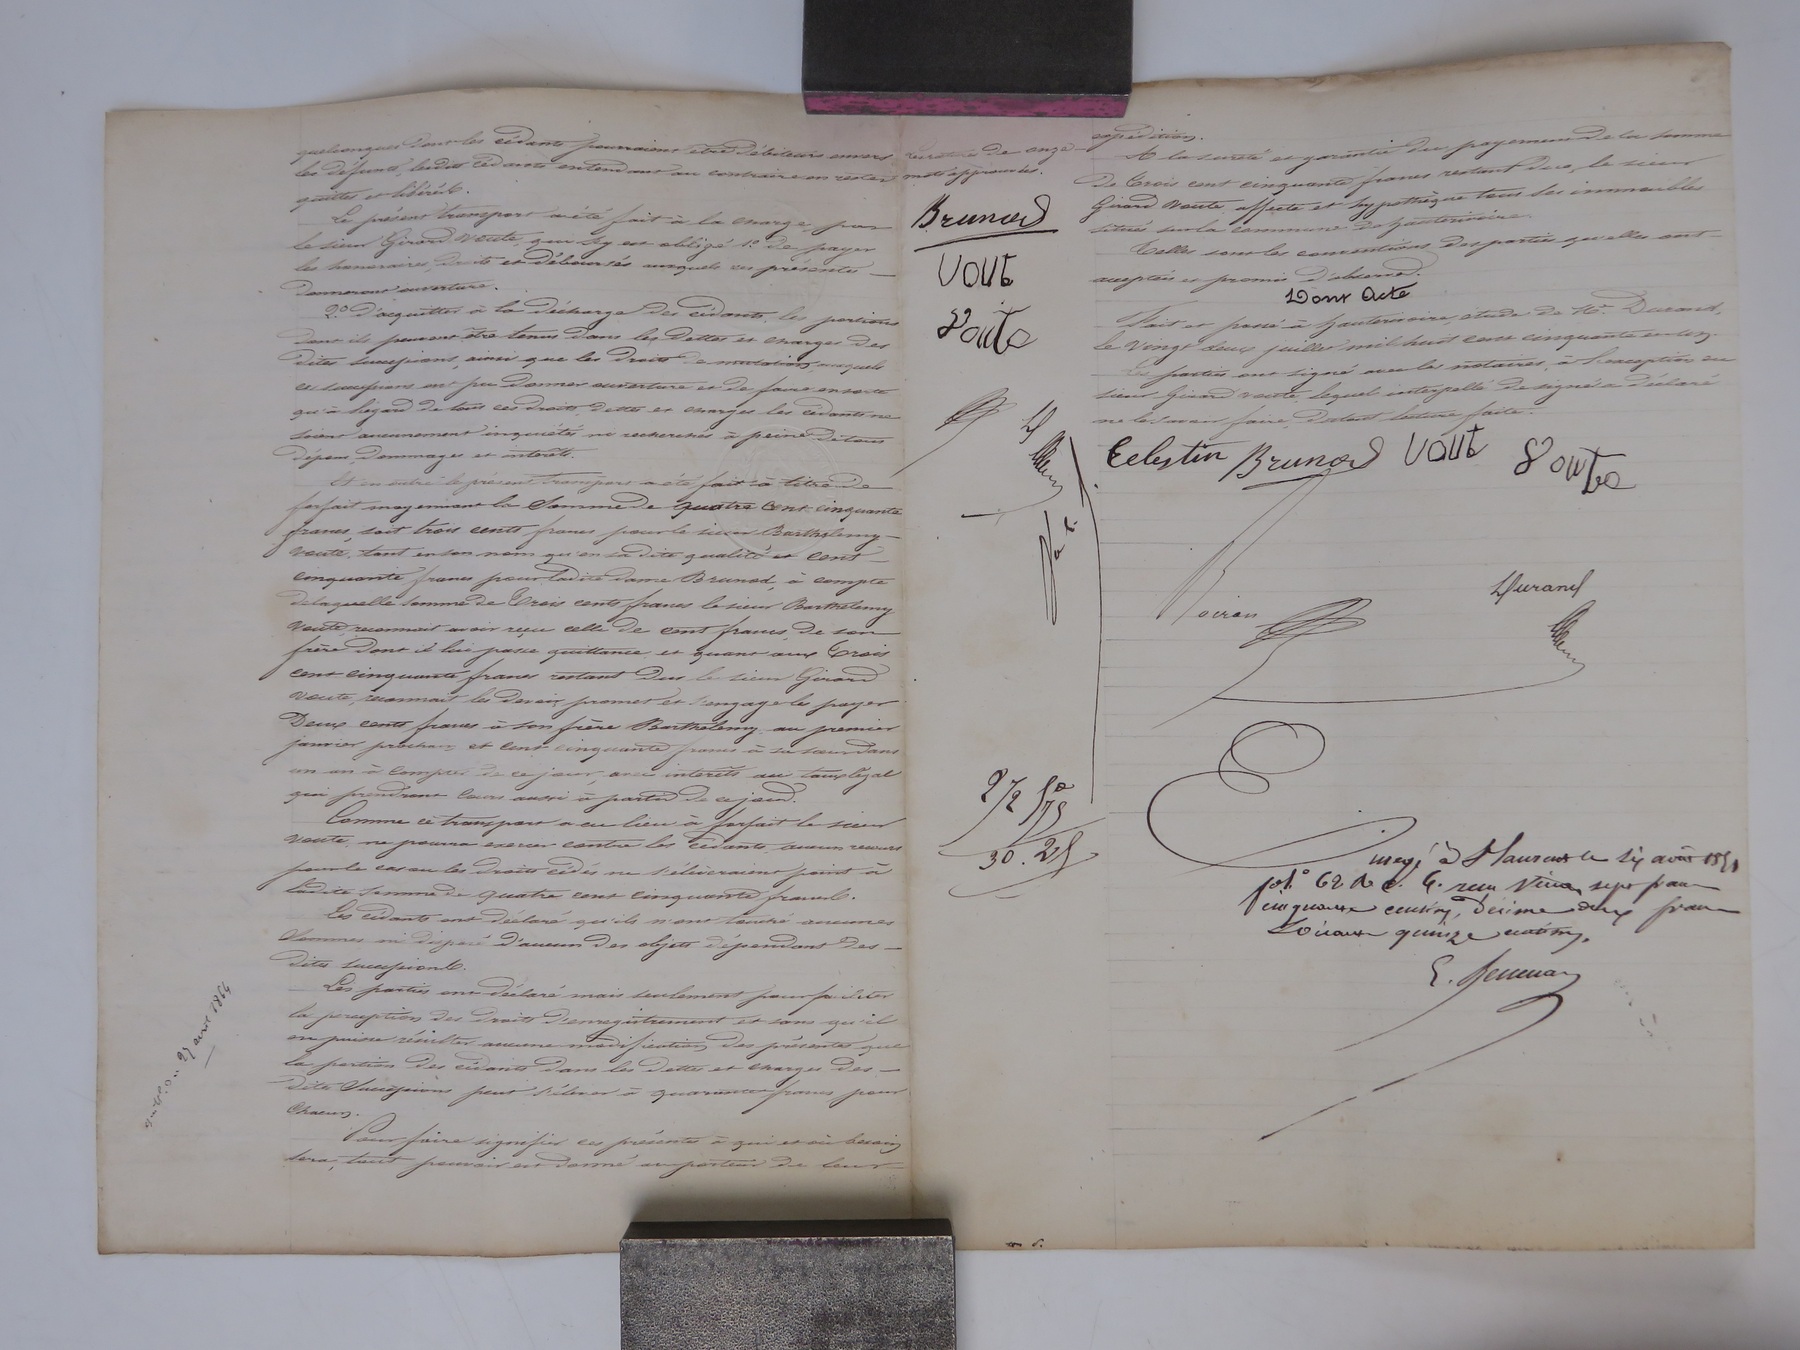 quelconques dont les cédants pourraient être débiteurs envers
les défunts, lesdits cédants entendant au contraire en rester
quittes et libérés.
Le présent transport a été fait à la charge, par
le sieur Girard Voute, qui s'y est obligé 1º de payer
les honoraires, droits et déboursés auxquels ces présentes
donneront ouverture.
2º d'acquitter à la décharge des cédants, les portions
dont ils peuvent être tenus dans les dettes et charges des
dites successions, ainsi que les droits de mutation auxquels
ces successions ont pu donner ouverture et de faire en sorte
qu'à l'égard de tous ces droits, dettes et charges les cédants ne
soient aucunement inquiétés ni recherchés à peine de tous
dépens, dommages et intérêts.
Et en outre le présent transport a été fait à titre de
forfait moyennant la somme de quatre cent cinquante
francs, soit trois cents francs pour le sieur Barthelemy
Voute, tant en son nom qu'en sa dite qualité et cent
cinquante francs pour ladite dame Brunod, à compte
de laquelle somme de trois cents francs le sieur Barthelemy
Voute, reconnait avoir reçu celle de cent francs, de son
frère dont il lui passe quittance, et quant aux trois
cent cinquante francs restant dus le sieur Girard
Voute, reconnait les devoir, promet et s'engage les payer
Deux cents francs à son frère Barthelemy au premier
janvier prochain et cent cinquante francs à sa sœur dans
un an à compter de ce jour, avec intérêts au taux légal
qui prendront cours aussi à partir de ce jour.
Comme ce transport a eu lieu à forfait le sieur
Voute, ne pourra exercer contre les cédants, aucun recours
pour le cas ou les droits cédés ne s'élèveraient point à
ladite somme de quatre cent cinquante francs.
Les cédants ont déclaré qu'ils n'ont touché aucunes
sommes ni disposé d'aucun des objets dépendant des
dites successions.
Les parties ont déclaré mais seulement pour faciliter
la perception des droits d'enregistrement et sans qu'il
en puisse résulter aucune modification des présentes que
la portion des cédants dans les dettes et charges des
dites successions peut s'élever à quarante francs pour
chacun.
Pour faire signifier ces présentes à qui et où besoin
sera, tout pouvoir est donné au porteur de leur
27 avril 1864
de onze
mots approuvés.
Brunod
Voute
Voute
D
27 50
2 75
30. 25
expédition.
A la sureté et garantie du payement de la somme
de trois cent cinquante francs restant due, le sieur
Girard Voute, affecte et hypothèque tous les immeubles
situés sur la commune de hauterivoire.
Telles sont les conventions des parties qu'elles ont
acceptées et promis d'observer.
Dont Acte
Fait et passé à hauterivoire, étude de Me Durand,
le vingt deux juillet mil huit cent cinquante et un,
Les parties ont signé avec les notaires, à l'exception du
sieur Girard Voute, lequel interpellé de signer a déclaré
ne le savoir faire, d'autant lecture faite.
Celestin Brunod Voute Voute
Durand
Enregé à St Laurent le six août 1851
fol.º 62 Rº c. 4. reçu vingt sept francs
cinquante centimes, décime deux francs
soixante quinze centimes.